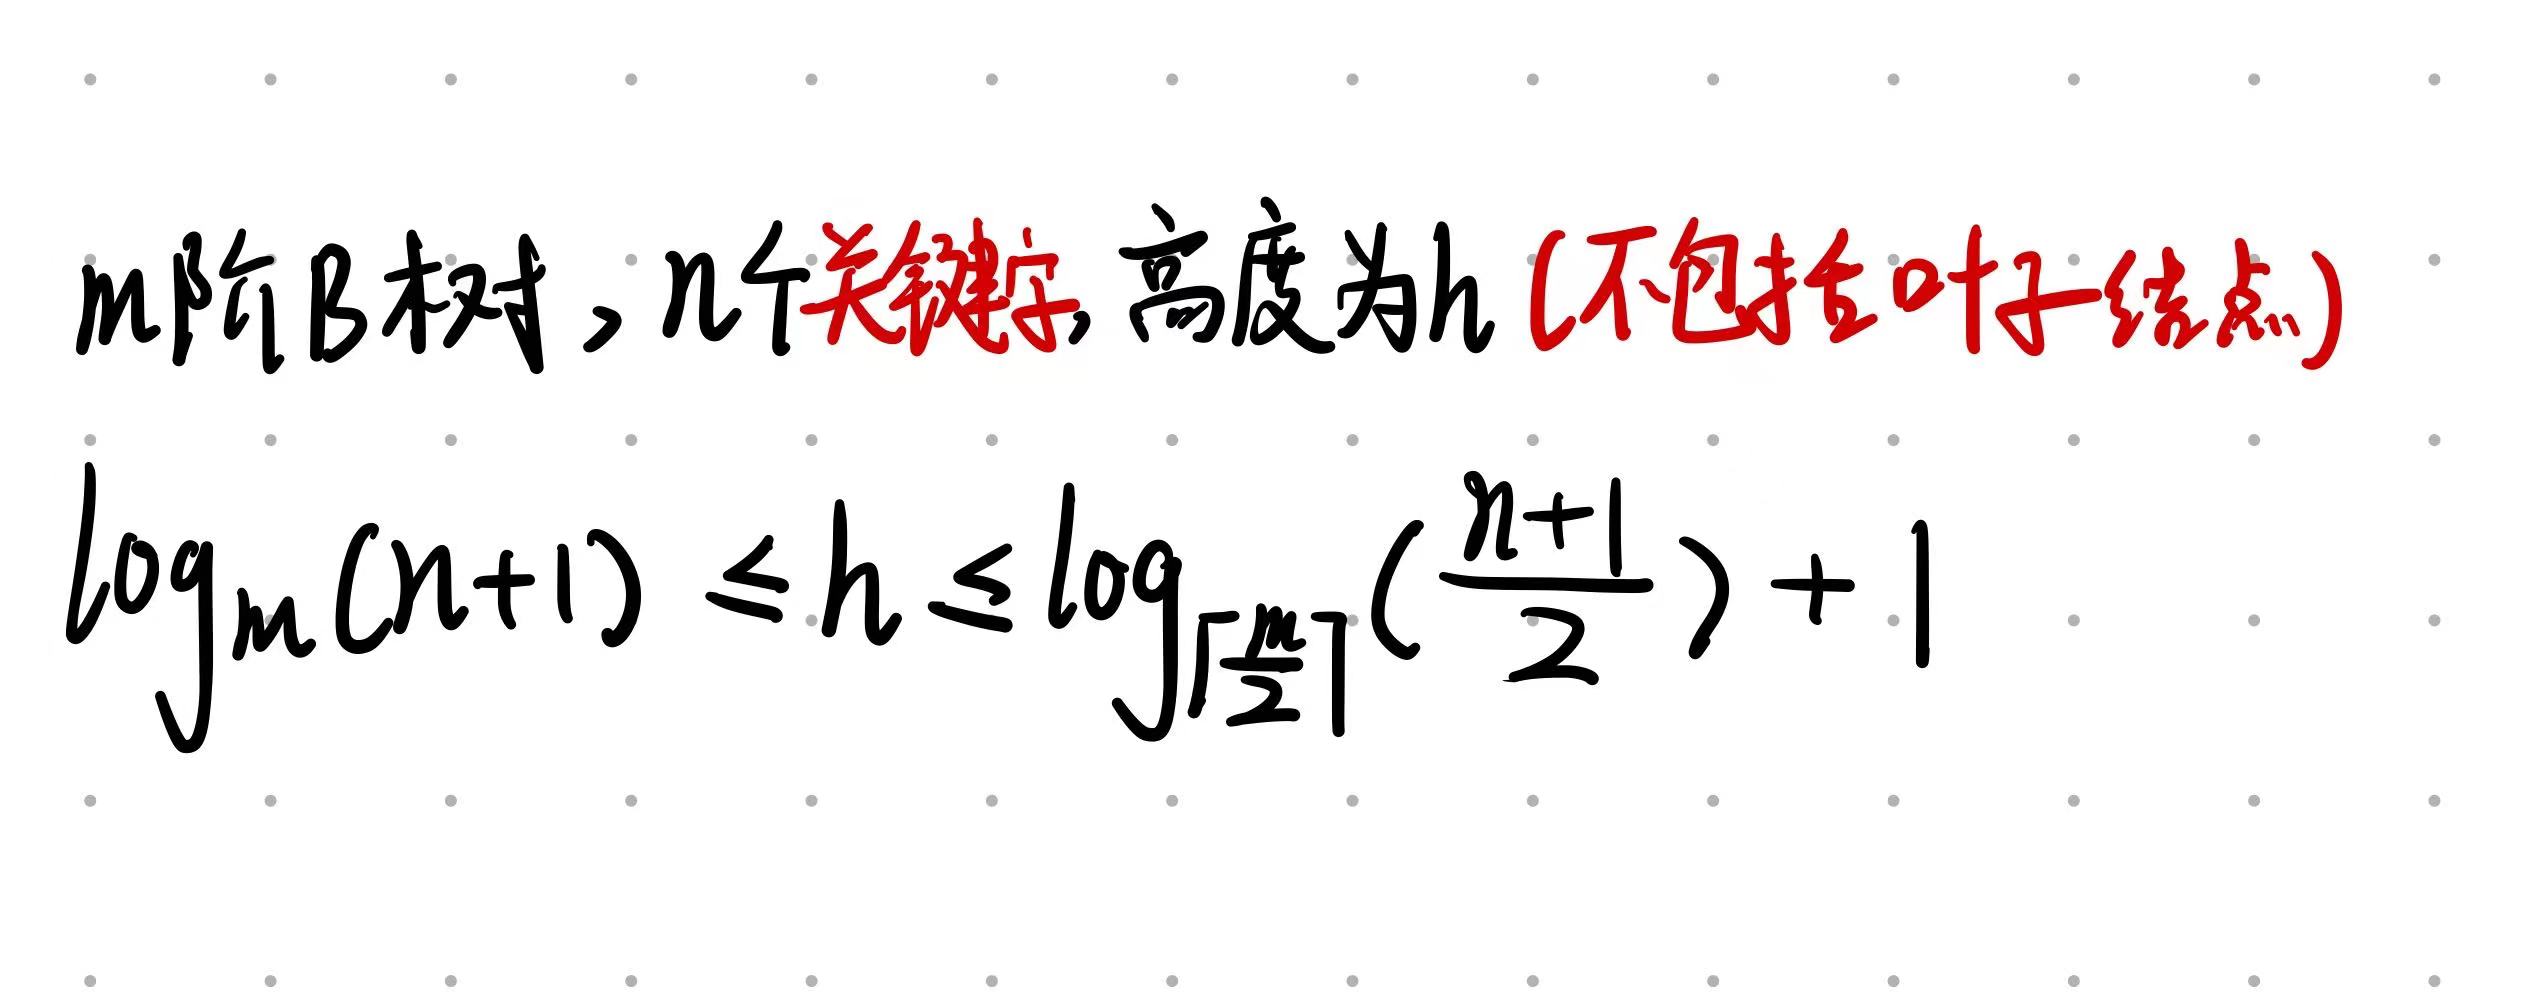 m阶B树，n个关键字，高度为h（不包括叶子结点）
logₘ(n+1) ≤ h ≤ log_⌈m/2⌉((n+1)/2) + 1